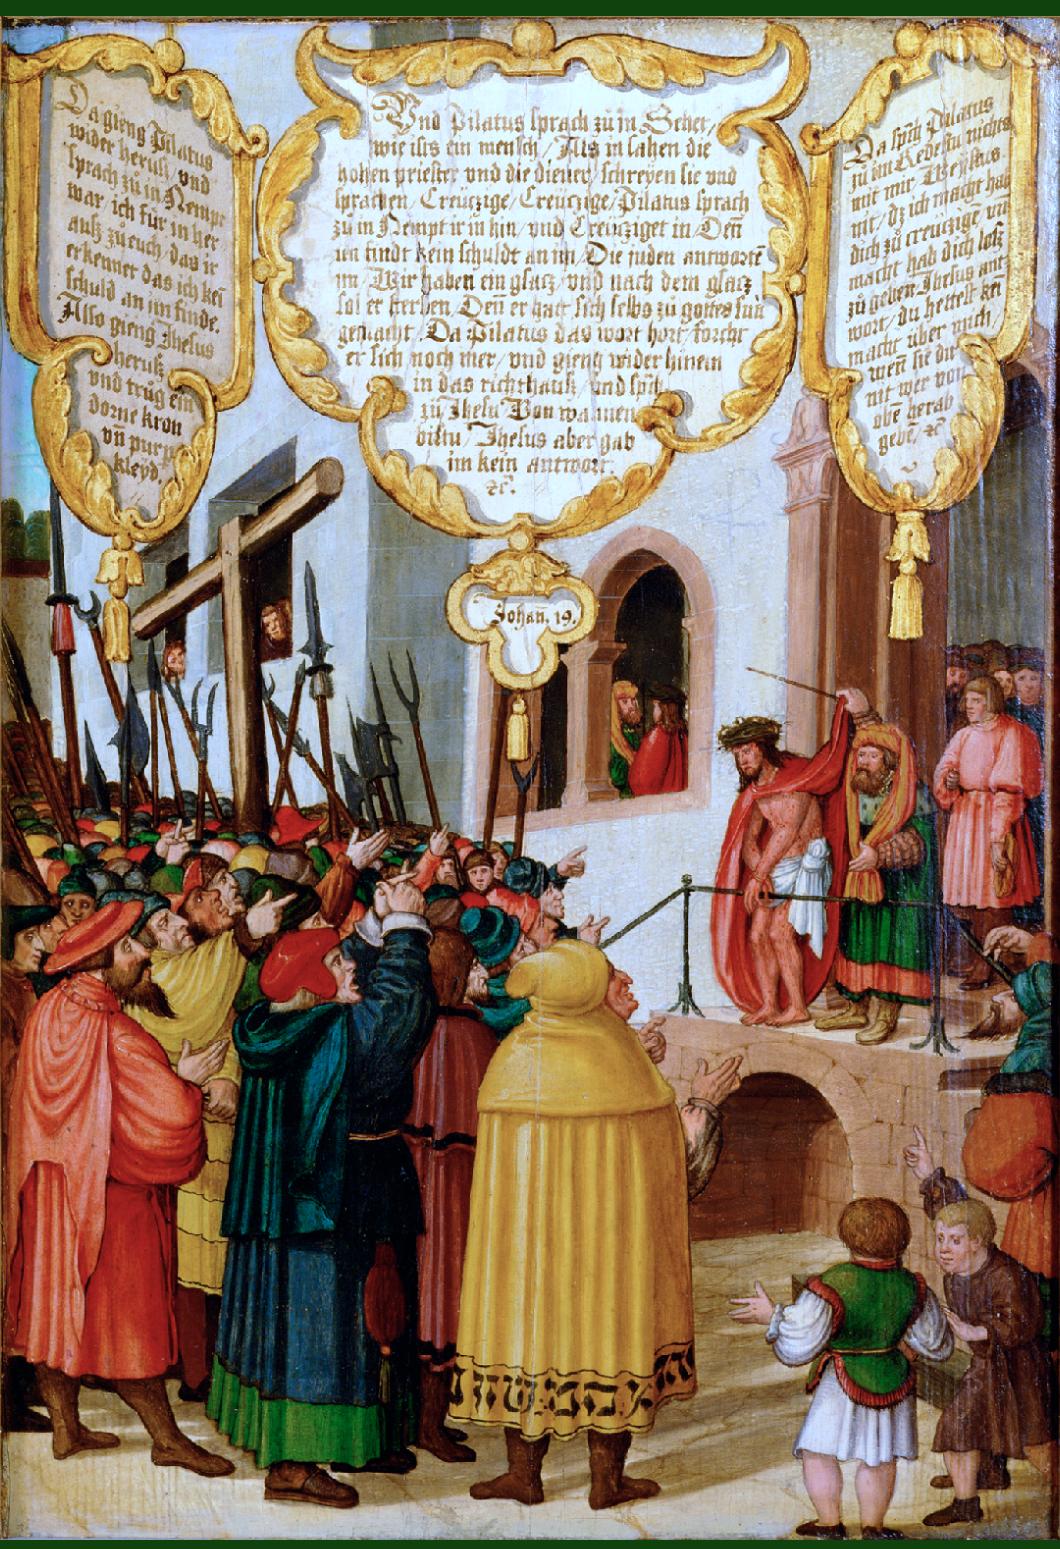 Da gieng Pilatus
wider heruß, vnd
sprach zů in Nempt
war ich für in her
auß zů euch, das ir
erkennet das ich kei
schuld an im finde.
Also gieng Jhesus
heruß
vnd trůg ein
dorne kron
vñ purp
kleyd.
Vnd Pilatus sprach zů in Sehet/
wie ists ein mensch/ Als in sahen die
hohen priester vnd die diener/ schreyen sie vnd
sprachen/ Creützige/ Creützige/ Pilatus sprach
zů in Nempt ir in hin/ vnd Creütziget in/ Deñ
ich findt kein schuldt an im/ Die iuden antwortē
im/ Wir haben ein gsatz/ vnd nach dem gsatz
sol er sterben/ Deñ er hatt sich selbs zů gottes sun
gemacht/ Da Pilatus das wort hort/ forcht
er sich noch mer/ vnd gieng wider hinein
in das richthauß/ vnd spch
zů Jhesu Von wannen
bistu/ Jhesus aber gab
im kein antwort.
ꝛc.
Johañ. 19.
Da spch Pilatus
zů im Redestu nichts
mit mir/ Weystus
nit/ dz ich macht hab
dich zů creützige vñ
macht hab dich loß
zů geben Jhesus ant
wort/ du hettest kei
macht über mich
weñ sie dir
nit wer von
obē herab
gebē/ ꝛc